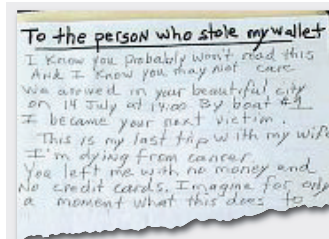 To the person who stole my wallet
I Know you probably won't read this
And I Know you may not care
We arrived in your beautiful city
on 14 July at 14:00 By boat #9
I became your next victim.
This is my last trip with my wife
I'm dying from cancer.
You left me with no money and
No credit cards. Imagine for only
a moment what this does to